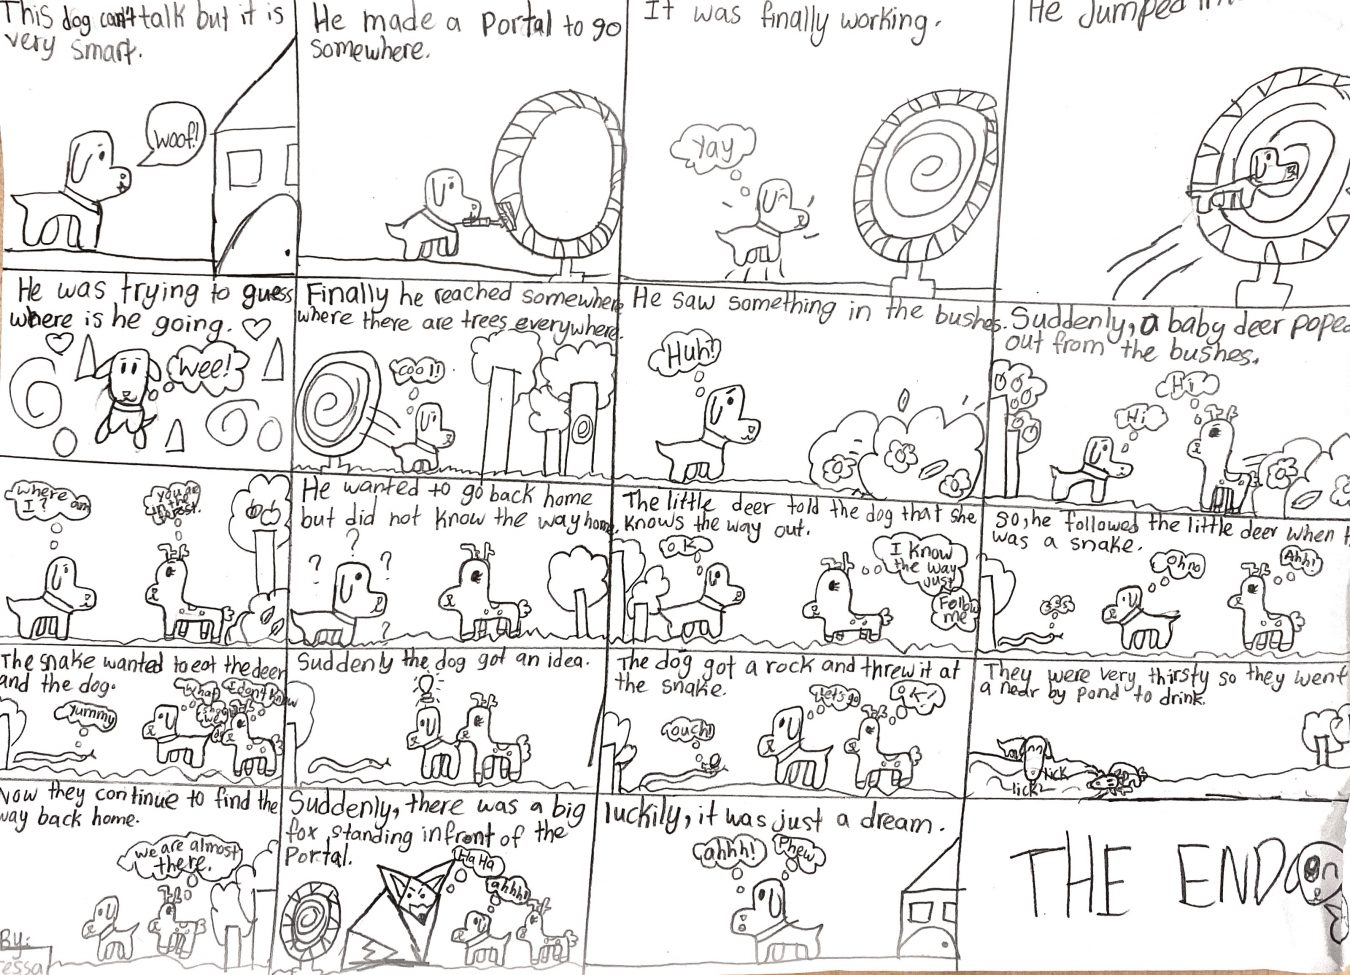 This dog can't talk but it is
very smart.
woof!
He made a Portal to go
somewhere.
It was finally working.
Yay
He Jumped
He was trying to guess
where is he going.
wee!
Finally he reached somewhere
where there are trees everywhere.
cool!
He saw something in the bushes.
Huh!
Suddenly, a baby deer poped
out from the bushes.
Hi
Hi
where
I? am
you are
in the
forest.
He wanted to go back home
but did not know the way home.
?
?
?
?
The little deer told the dog that she
knows the way out.
O.K
I know
the way
just
Follow
me
So, he followed the little deer when
was a snake.
sss
oh no
Ahh!
The snake wanted to eat the deer
and the dog.
Yummy
What
should
we
do
I don't know
Suddenly the dog got an idea.
The dog got a rock and threw it at
the snake.
ouch!
let's go
O.K!
They were very thirsty so they went
a near by pond to drink.
lick
lick
Now they continue to find the
way back home.
we are almost
there.
By:
Tessa
Suddenly, there was a big
fox standing infront of the
Portal.
Ha Ha
ahhh!
luckily, it was just a dream.
ahhh!
Phew
THE END